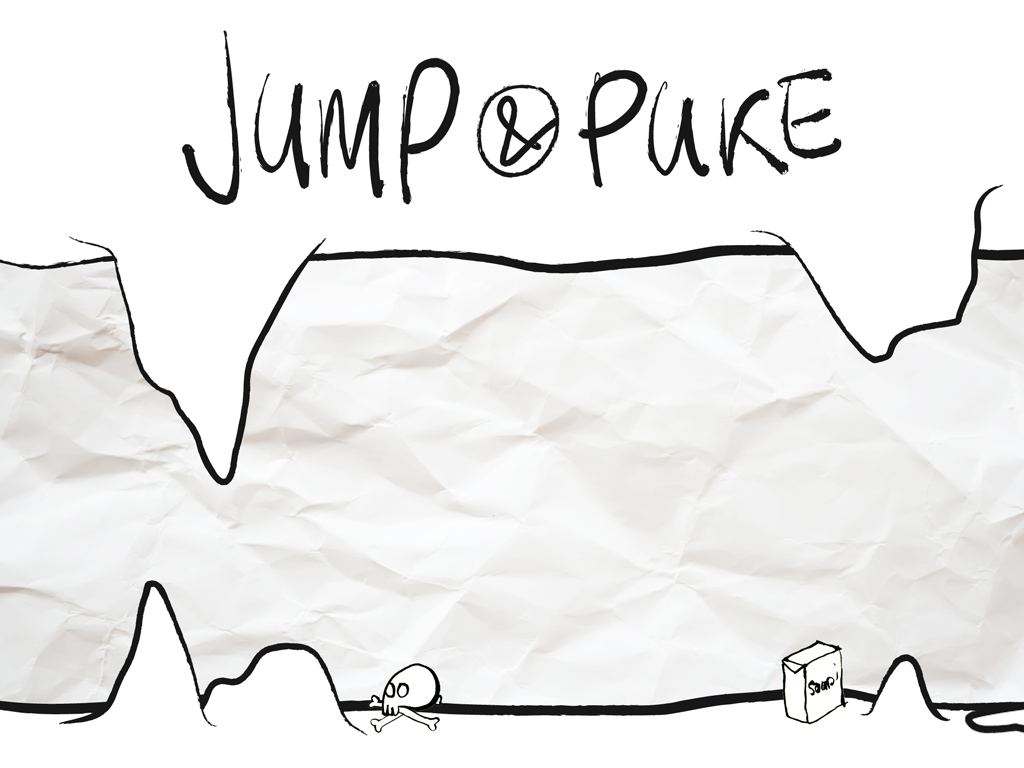 JUMP & PUKE
SOUP